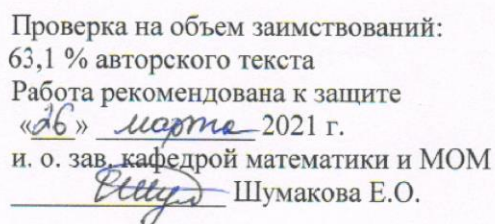 Проверка на объем заимствований:
63,1 % авторского текста
Работа рекомендована к защите
«26» марта 2021 г.
и. о. зав. кафедрой математики и МОМ
Шумакова Е.О.